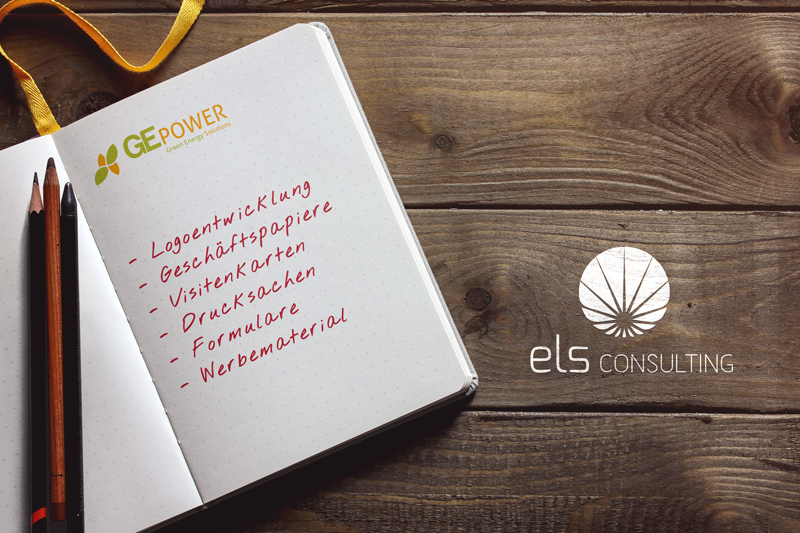 GEPOWER
Green Energy Solutions
- Logoentwicklung
- Geschäftspapiere
- Visitenkarten
- Drucksachen
- Formulare
- Werbematerial
els CONSULTING